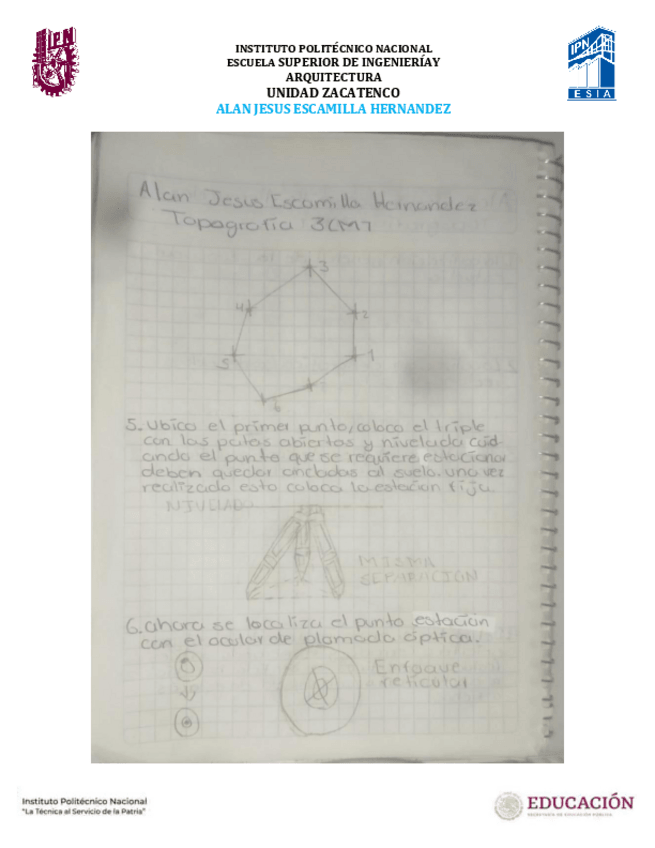 IPN
INSTITUTO POLITÉCNICO NACIONAL
ESCUELA SUPERIOR DE INGENIERÍAY
ARQUITECTURA
UNIDAD ZACATENCO
ALAN JESUS ESCAMILLA HERNANDEZ
IPN
ESIA
Alan Jesus Escamilla Hernandez
Topografía 3CM7
3
4
2
5
1
6
5. Ubico el primer punto, coloco el tripie
con las patas abiertas y nivelado cuid-
ando el punto que se requiere estacionar
deben quedar ancladas al suelo. una vez
realizado esto coloca la estacion fija.
NIVELADO
MISMA
SEPARACIÓN
6. ahora se localiza el punto estación
con el ocular de plomada óptica.
Enfoque
reticular
Instituto Politécnico Nacional
"La Técnica al Servicio de la Patria"
EDUCACIÓN
SECRETARÍA DE EDUCACIÓN PÚBLICA